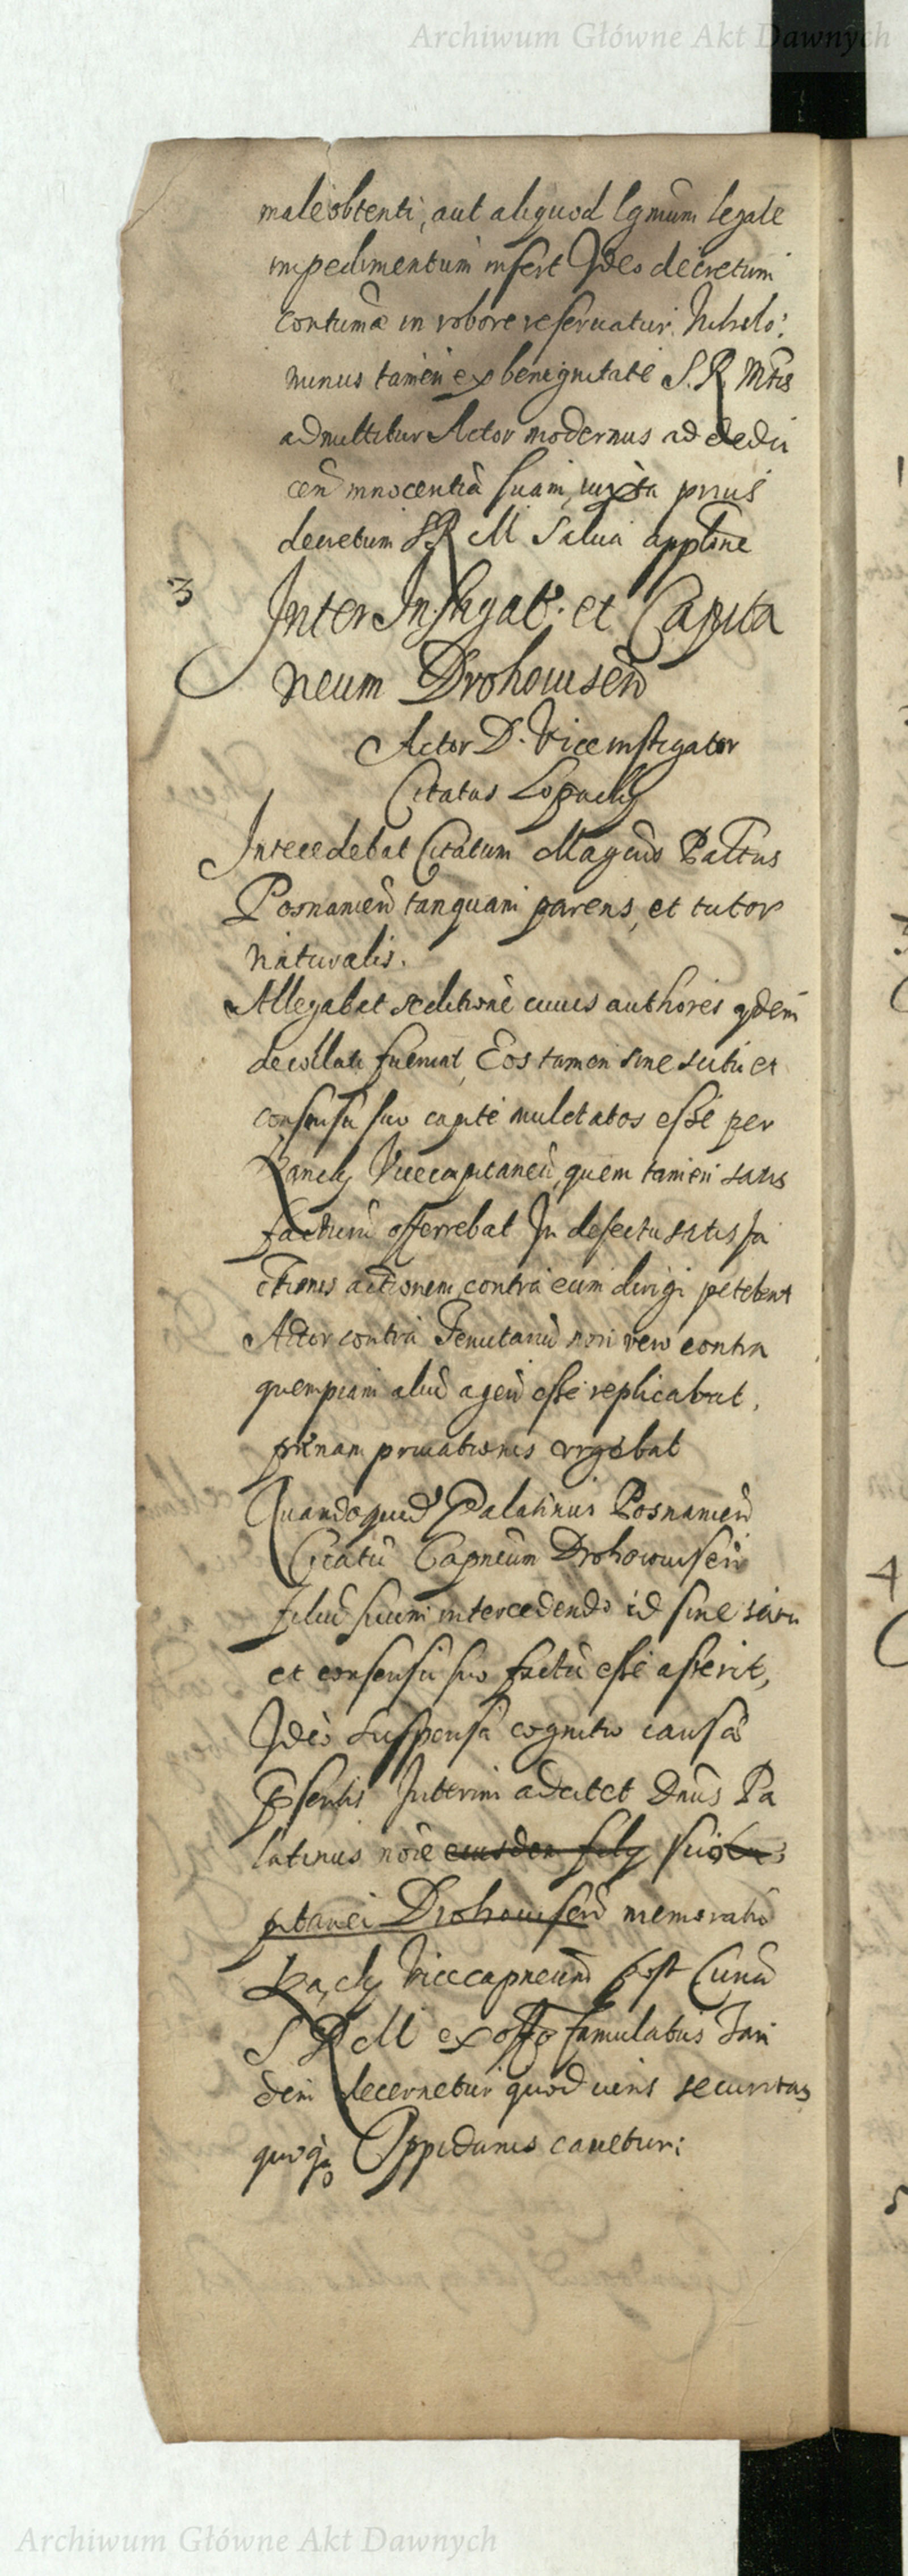 Archiwum Główne Akt Dawnych
male obtenti, aut aliquod lgmūm legale
impedimentum insert Ideo decretum
contumā in robore reseruatur. Nihilo:
minus tamen ex benignitate S. R. Mtis
admittitur Actor modernus ad dedu
cen̄ innocentiā suam, iuxta prius
decretum S R M Salua applōne
3
Inter Instigat: et Capita
neum Drohouisen̄
Actor D. Viceinstigator
Citatus
Intecedebat Citatum Magcus Palt̄us
Posnanien̄ tanquam parens, et tutor
naturalis.
Allegabat seditionē cuius authores qdem
decollati fuerunt, Eos tamen sine scitu et
consensu suo capite mulctatos esse per
Viceccapitaneū, quem tamen satis
facturū offerrebat In defectu satisfa
ctionis actionem contra eum dirigi petebat
Actor contra Tenutariū non vero contra
quempiam aliū agen̄ esse replicabat,
pœnam priuationis vrgebat
Quandoquid' Palatinus Posnanien̄
Citatū Capneum Drohowuisen̄
filiū suum intercedendo id sine scitu
et consensu suo factū esse asserit,
Ideo suspensa cognitio causæ
pn̄sentis Interim adcitet Dnus Pa
latinus noīe eiusdem filÿ sui
ptanei Drohouisen̄ memoratū
Vicecapneum post Curiā
S R M ex offo famulatus Tan
dem decernetur quod iuris securitas
quoqз Oppidanis cauetur:
4
5
Archiwum Główne Akt Dawnych